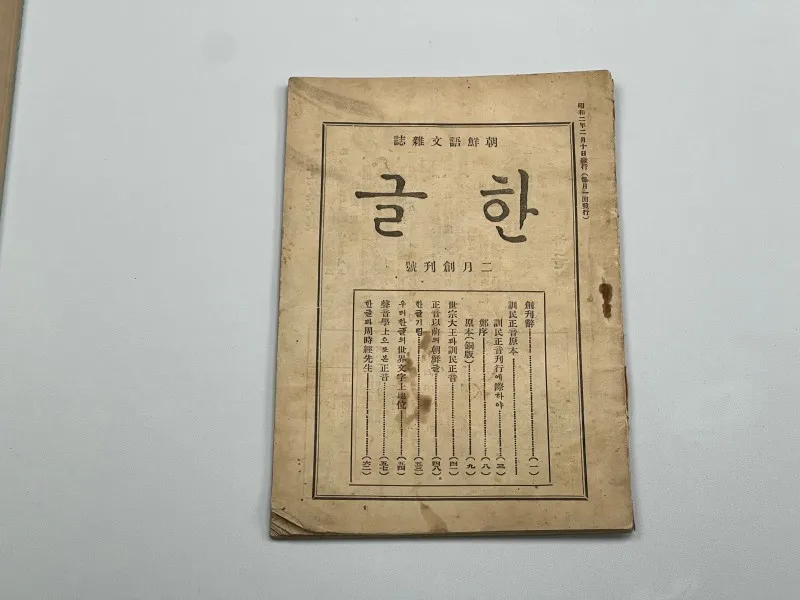 昭和二年二月十日發行(每月一回發行)
朝鮮語文雜誌
한글
二月創刊號
創刊辭……(一)
訓民正音原本……
訓民正音刊行에際하야……(三)
鄭序……(八)
原本(銅版)……(九)
世宗大王과訓民正音……(四一)
正音以前의朝鮮글……(四八)
한글기림……(五三)
우리한글의世界文字上地位……(五四)
聲音學上으로본正音……(五七)
한글과周時經先生……(六二)